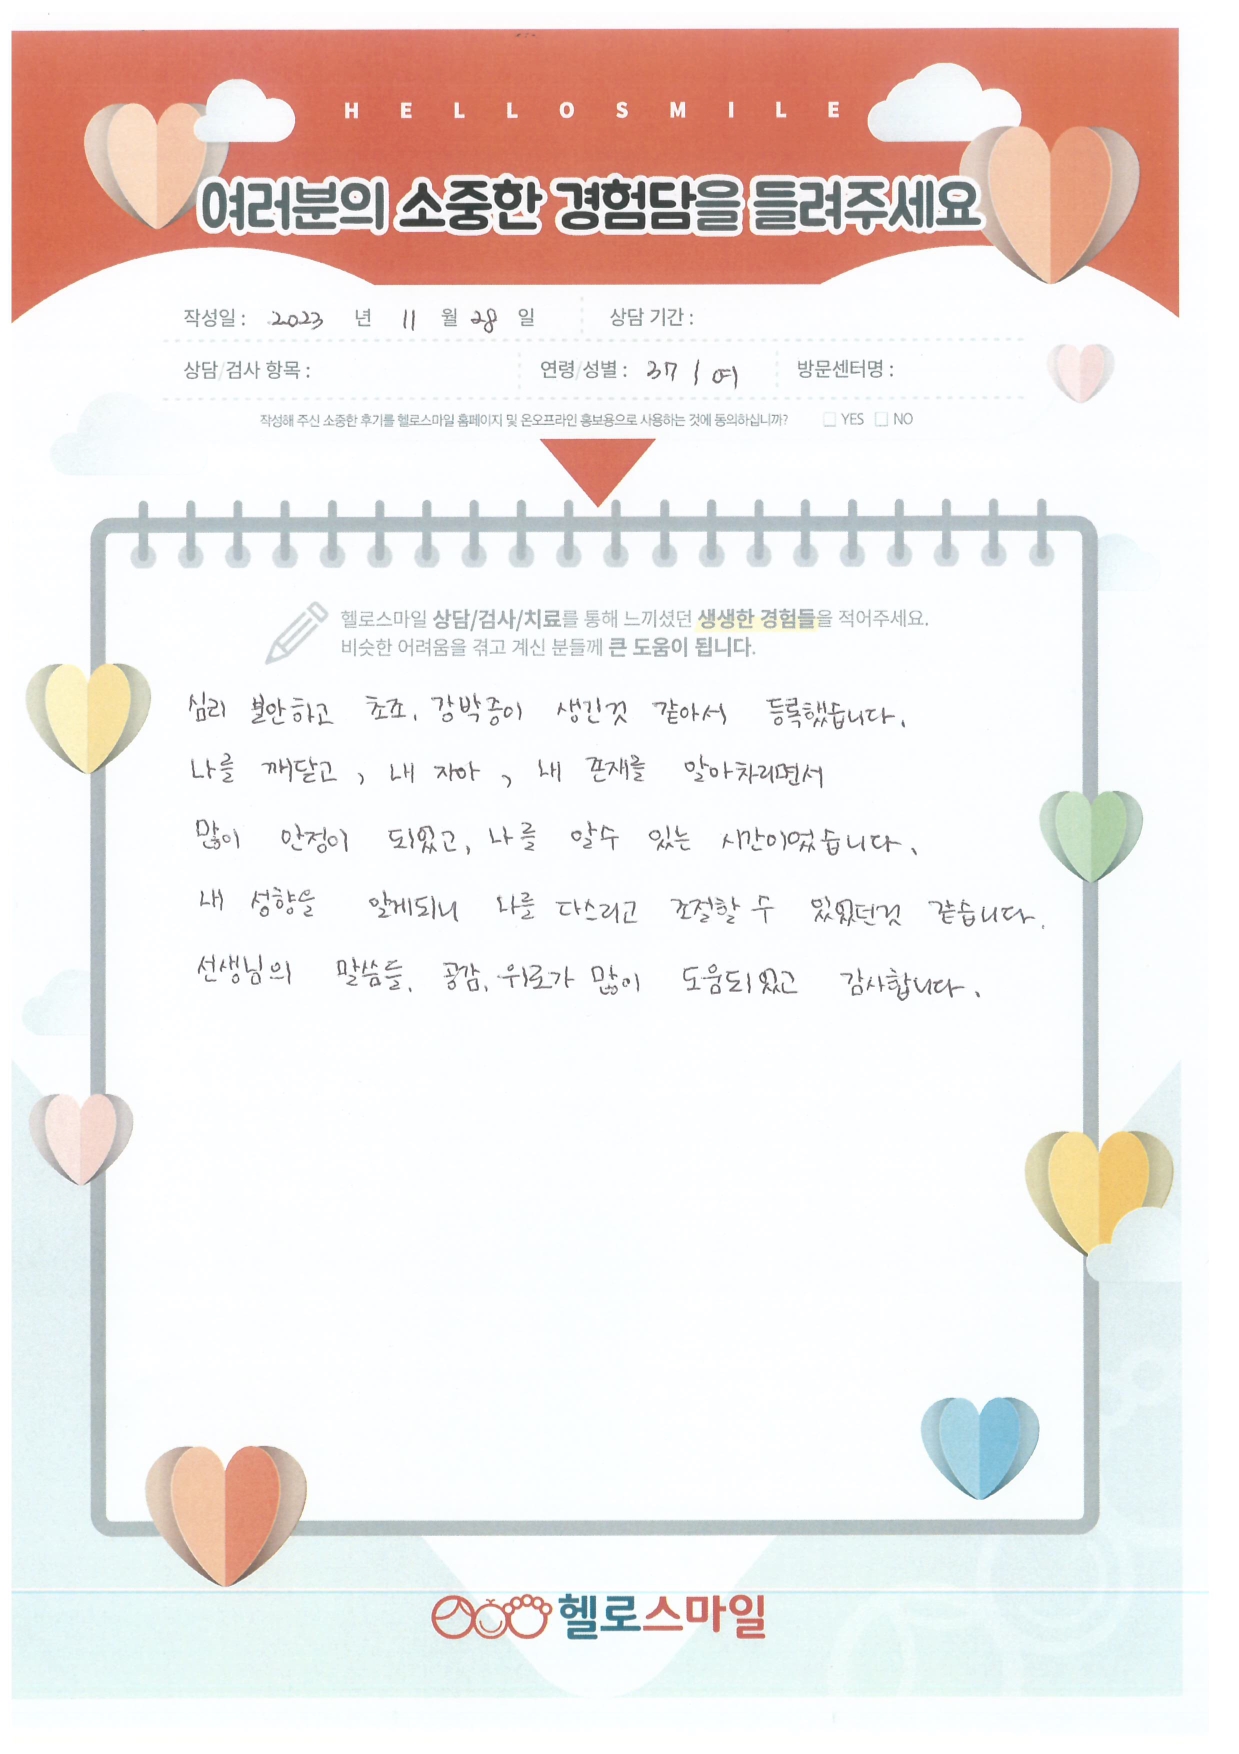 HELLOSMILE
여러분의 소중한 경험담을 들려주세요
작성일 : 2023 년 11 월 28 일 상담 기간 :
상담/검사 항목 : 연령/성별 : 37 / 여 방문센터명 :
작성해 주신 소중한 후기를 헬로스마일 홈페이지 및 온오프라인 홍보용으로 사용하는 것에 동의하십니까? □ YES □ NO
헬로스마일 상담/검사/치료를 통해 느끼셨던 생생한 경험들을 적어주세요.
비슷한 어려움을 겪고 계신 분들께 큰 도움이 됩니다.
심리 불안하고 초조, 강박증이 생긴것 같아서 등록했습니다.
나를 깨닫고, 내 자아, 내 존재를 알아차리면서
많이 안정이 되었고, 나를 알수 있는 시간이었습니다.
내 성향을 알게되니 나를 다스리고 조절할 수 있었던것 같습니다.
선생님의 말씀들, 공감, 위로가 많이 도움되었고 감사합니다.
헬로스마일